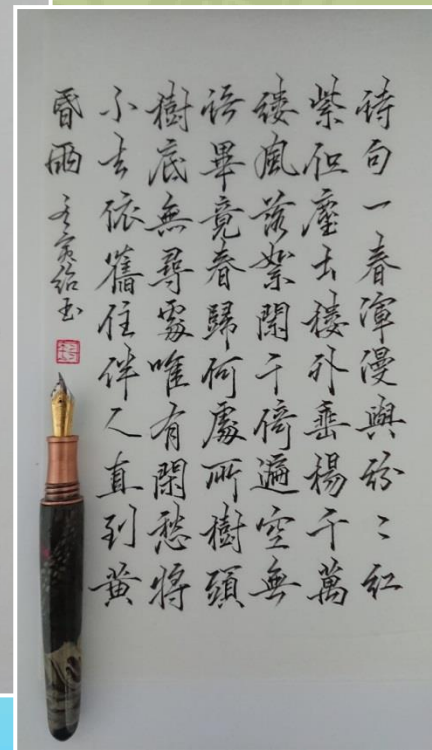 詩句一春渾漫與紛〻紅
紫但塵土樓外垂楊千萬
縷風落絮闌干倚遍空無
語畢竟春歸何處所樹頭
樹底無尋處唯有閑愁將
不去依舊住伴人直到黃
昏雨 壬寅紹玉